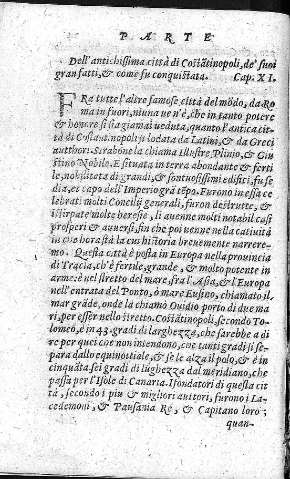 PARTE
Dell'antichissima città di Costãtinopoli, de' suoi
gran fatti, & come fu conquistata. Cap. XI.
FRa tutte l'altre famose città del mõdo, da Ro
ma in fuori, niuna ve n'è, che in tanto potere
& honore si sia giamai veduta, quanto l'antica cit-
tà di Costantinopoli lodata da Latini, & da Greci
authori. Strabone la chiama illustre, Plinio, & Giu
stino Nobile. E situata in terra abondante & ferti
le, nobilitata di grandi, & sontuosissimi edifici, fu se
dia, et capo dell'Imperio grã tẽpo. Furono in essa ce
lebrati molti Concilij generali, furon destrutte, &
istirpate molte heresie, li auenne molti notabil casi
prosperi & auuersi, fin che poi venne nella cattiuità
in che hora stà la cui historia breuemente narrere-
mo. Questa città è posta in Europa nella prouincia
di Tracia, ch'è fertile, grande, & molto potente in
arme: è nel stretto del mare, fra l'Asia, & l'Europa
nell'entrata del Ponto, ò mare Eusino, chiamato il
mar grãde, onde la chiamo Ouidio porto di due ma
ri, per esser nello stretto. Costãtinopoli, secondo To-
lomeo, è in 43. gradi di larghezza, che sarebbe a di
re per quei che non intendono, che tanti gradi si se-
para dall'equinottiale, & se le alza il polo, & è in
cinquãta sei gradi di lũghezza dal meridiano, che
passa per l'Isole di Canaria. I fondatori di questa cit
tà, secondo i piu & migliori auttori, furono i La-
cedemoni, & Pausania Re, & Capitano loro;
quan-